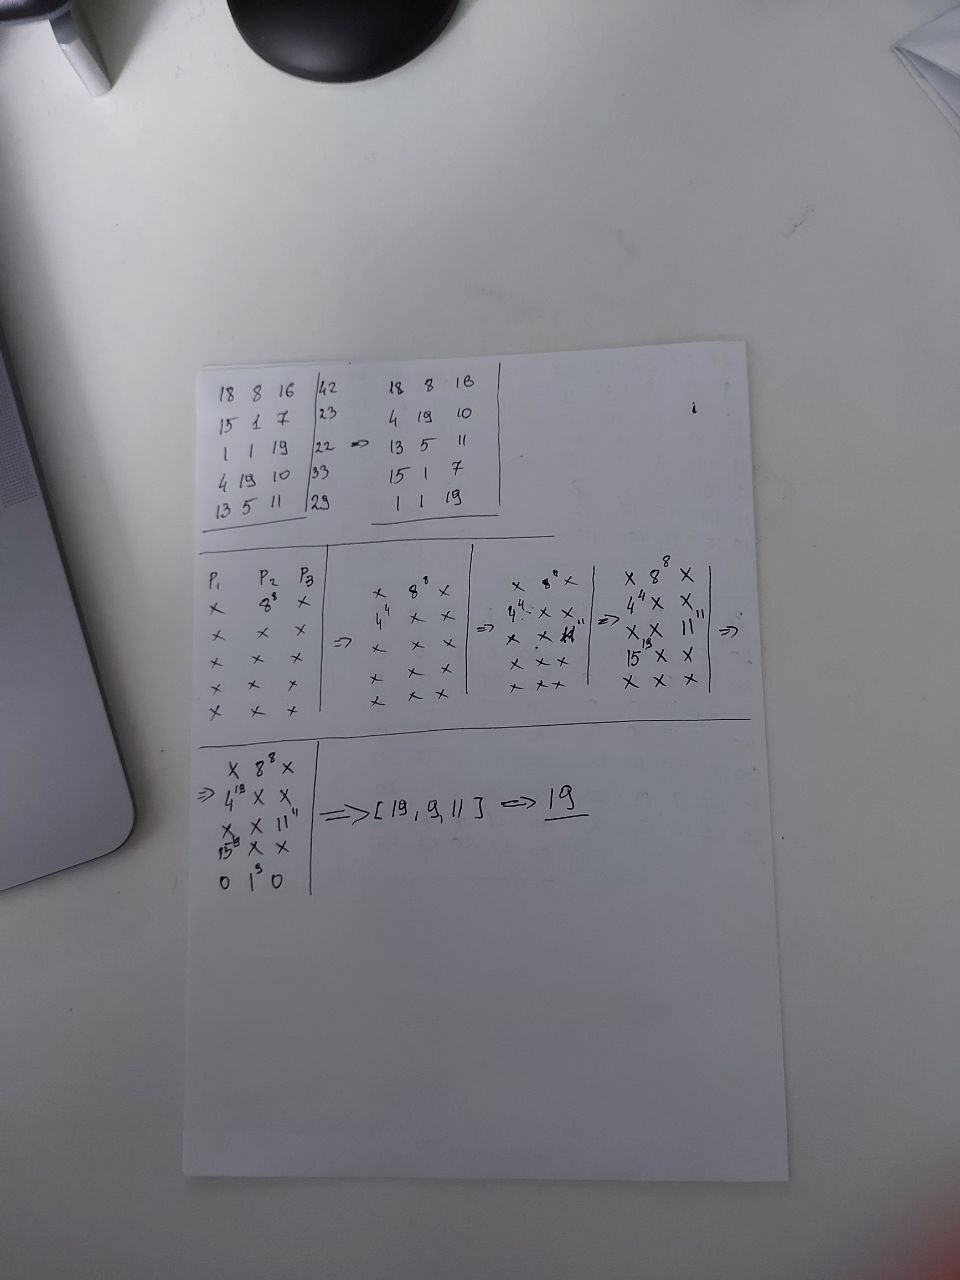 18 8 16 | 42
15 1 7 | 23
1 1 19 | 22 =>
4 19 10 | 33
13 5 11 | 29
18 8 16
4 19 10
13 5 11
15 1 7
1 1 19
P₁ P₂ P₃
x 8⁸ x
x x x
x x x
x x x
x x x
=>
x 8⁸ x
4⁴ x x
x x x
x x x
x x x
=>
x 8⁸ x
4⁴ x x
x x 11¹¹
x x x
x x x
=>
x 8⁸ x
4⁴ x x
x x 11¹¹
15¹⁹ x x
x x x
=>
x 8⁸ x
=> 4¹⁹ x x
x x 11¹¹
15 x x
0 1⁹ 0
=> [19, 9, 11] => 19